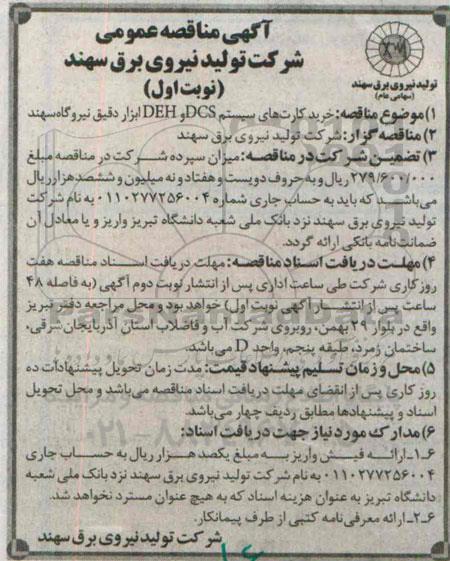 آگهی مناقصه عمومی
شرکت تولید نیروی برق سهند
(نوبت اول)
تولید نیروی برق سهند
(سهامی عام)
۱) موضوع مناقصه: خرید کارت‌های سیستم DCS و DEH ابزار دقیق نیروگاه سهند
۲) مناقصه گزار: شرکت تولید نیروی برق سهند
۳) تضمین شرکت در مناقصه: میزان سپرده شرکت در مناقصه مبلغ
۲۷۹/۶۰۰/۰۰۰ ریال و به حروف دویست و هفتاد و نه میلیون و ششصد هزار ریال
می‌باشد که باید به حساب جاری شماره ۰۱۱۰۲۷۷۲۵۶۰۰۴ به نام شرکت
تولید نیروی برق سهند نزد بانک ملی شعبه دانشگاه تبریز واریز و یا معادل آن
ضمانت‌نامه بانکی ارائه گردد.
۴) مهلت دریافت اسناد مناقصه: مهلت دریافت اسناد مناقصه هفت
روز کاری شرکت طی ساعت اداری پس از انتشار نوبت دوم آگهی (به فاصله ۴۸
ساعت پس از انتشار آگهی نوبت اول) خواهد بود و محل مراجعه دفتر تبریز
واقع در بلوار ۲۹ بهمن، روبروی شرکت آب و فاضلاب استان آذربایجان شرقی،
ساختمان زمرد، طبقه پنجم، واحد D می‌باشد.
۵) محل و زمان تسلیم پیشنهاد قیمت: مدت زمان تحویل پیشنهادات ده
روز کاری پس از انقضای مهلت دریافت اسناد مناقصه می‌باشد و محل تحویل
اسناد و پیشنهادها مطابق ردیف چهار می‌باشد.
۶) مدارک مورد نیاز جهت دریافت اسناد:
۶ـ۱ـ ارائه فیش واریز به مبلغ یکصد هزار ریال به حساب جاری
۰۱۱۰۲۷۷۲۵۶۰۰۴ به نام شرکت تولید نیروی برق سهند نزد بانک ملی شعبه
دانشگاه تبریز به عنوان هزینه اسناد که به هیچ عنوان مسترد نخواهد شد.
۶ـ۲ـ ارائه معرفی‌نامه کتبی از طرف پیمانکار.
شرکت تولید نیروی برق سهند